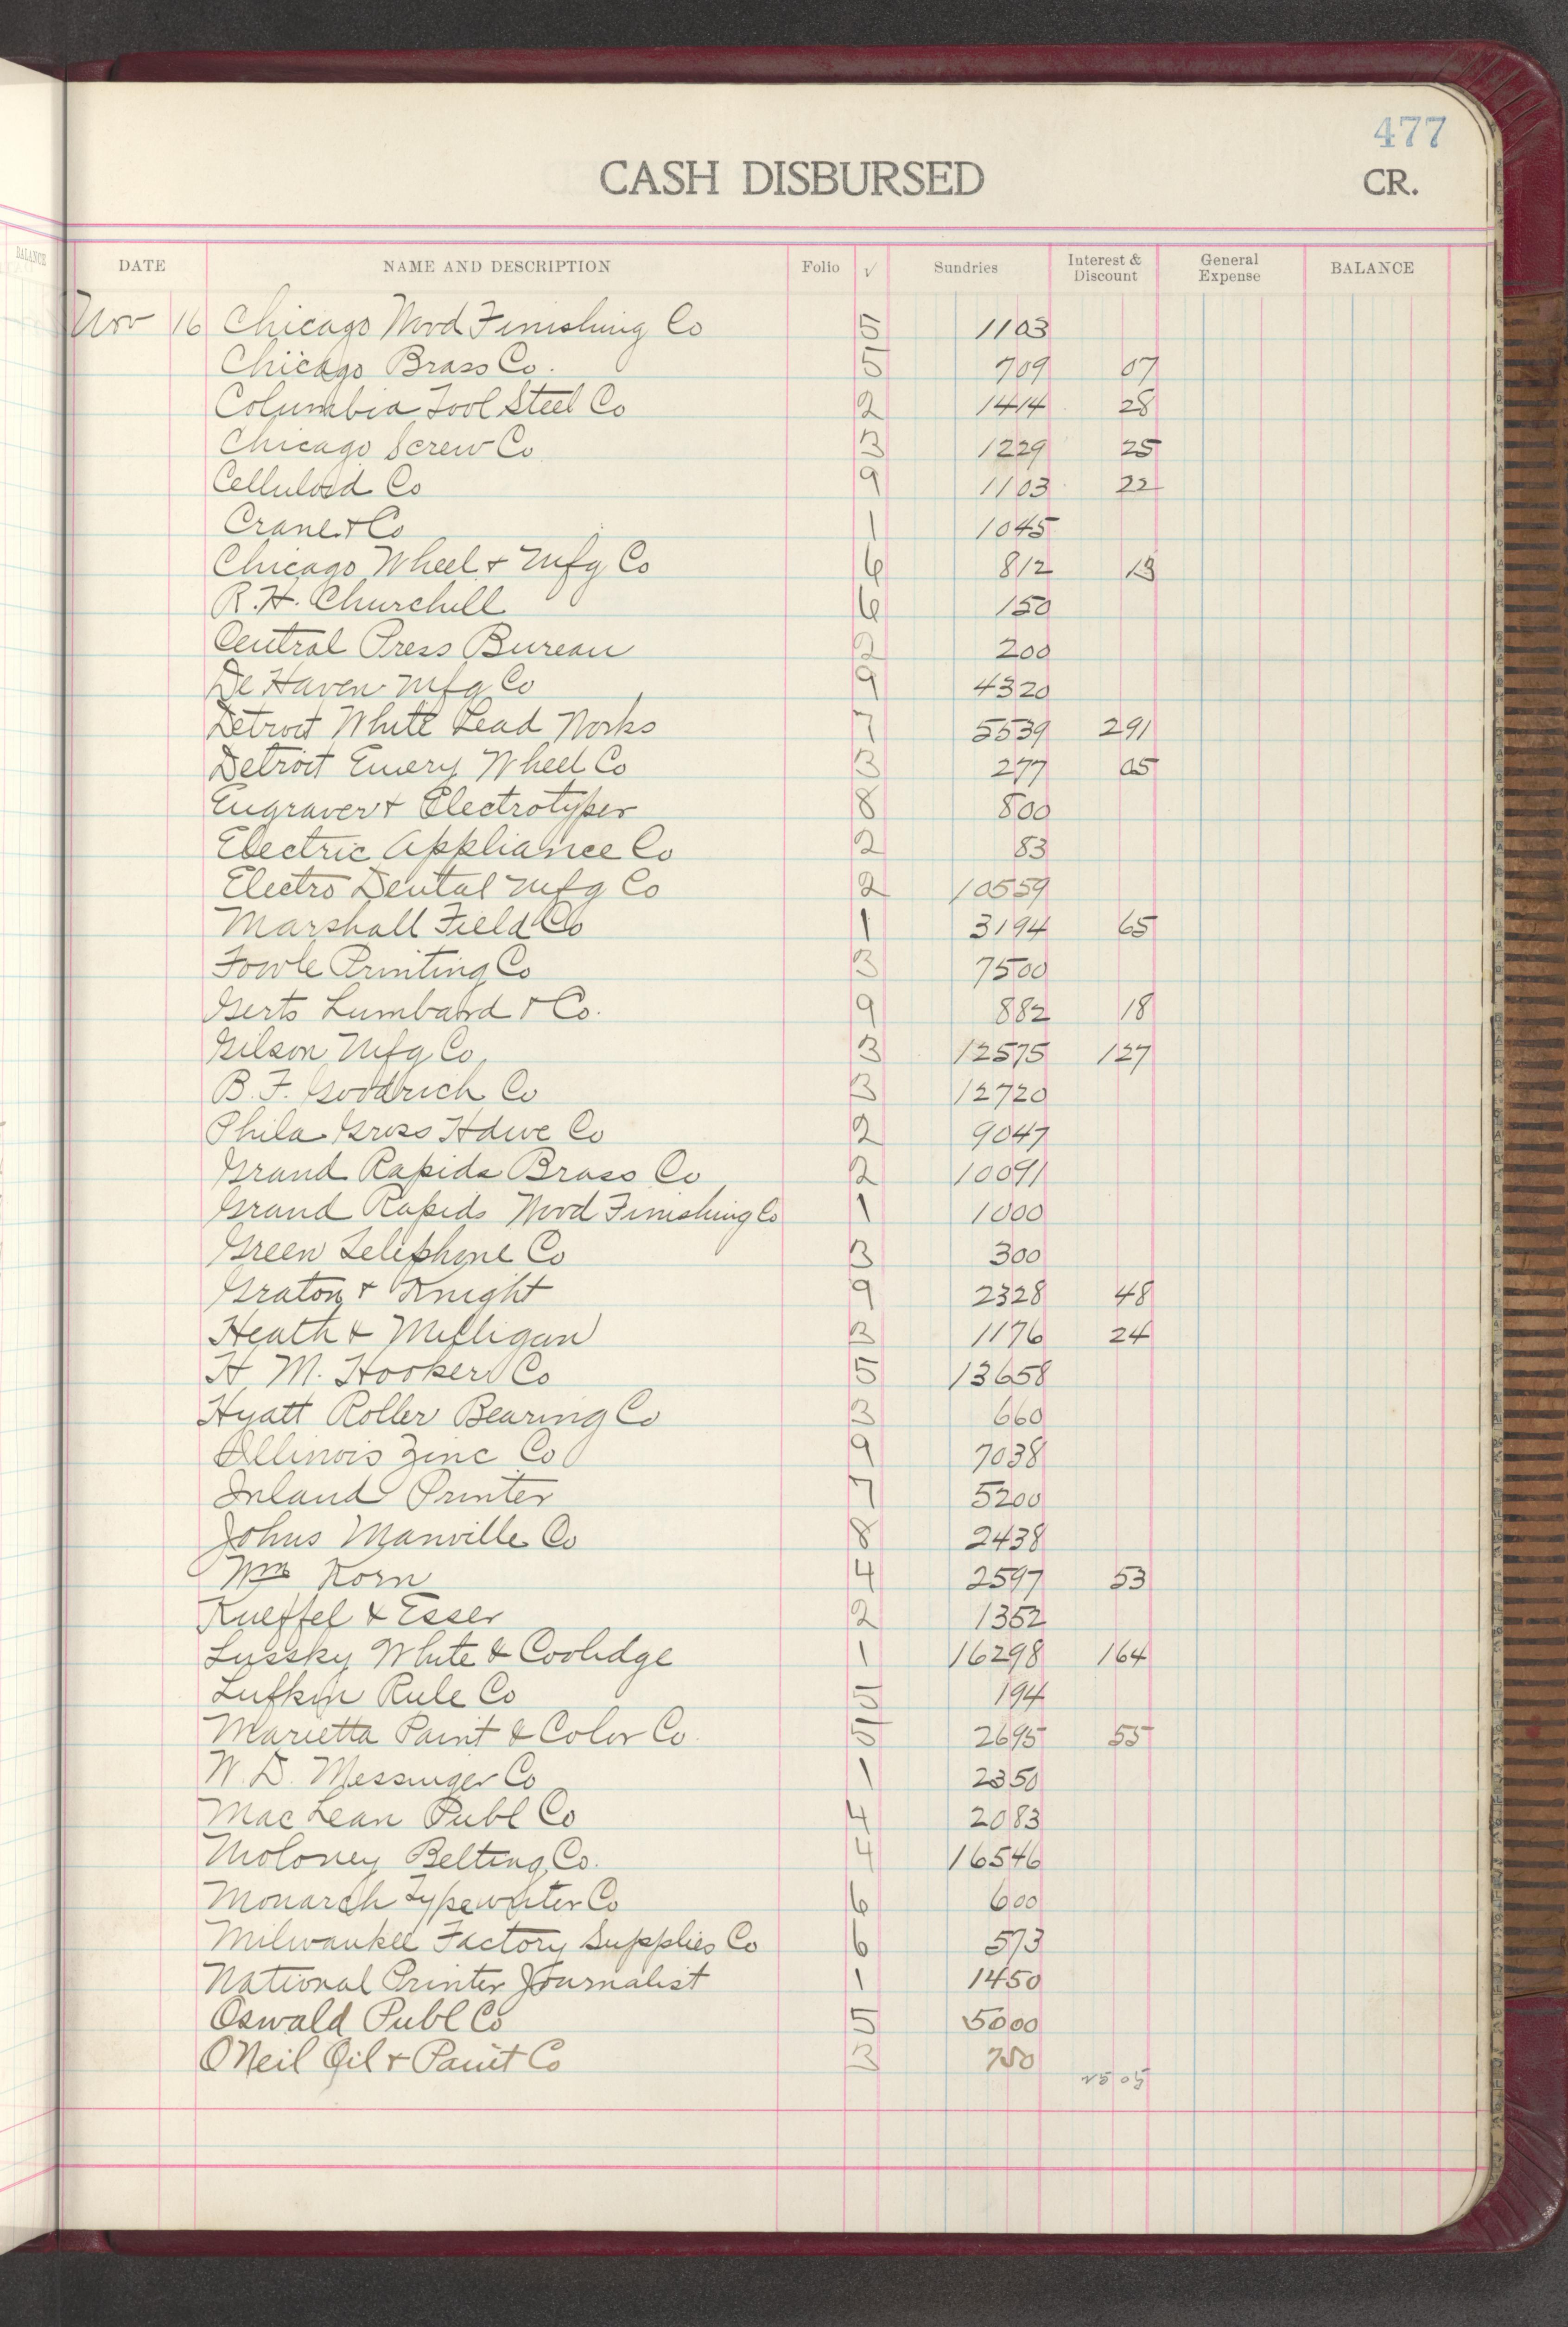 BALANCE
477
CASH DISBURSED CR.
DATE NAME AND DESCRIPTION Folio √ Sundries Interest & Discount General Expense BALANCE
Nov 16 Chicago Wood Finishing Co 5 1103
Chicago Brass Co. 5 709 07
Columbia Tool Steel Co 2 1414 28
Chicago Screw Co 3 1229 25
Celluloid Co 9 1103 22
Crane & Co 1 1045
Chicago Wheel & Mfg Co 6 812
R. H. Churchill 6 150
Central Press Bureau 2 200
De Haven Mfg Co 9 4320
Detroit White Lead Works 7 5539 291
Detroit Emery Wheel Co 3 277 05
Engraver & Electrotyper 8 800
Electric Appliance Co 2 83
Electro Dental Mfg Co 2 10559
Marshall Field Co 1 3194 65
Fowle Printing Co 3 7500
Gerts Lumbard & Co. 9 882 18
Gilson Mfg Co. 3 12575 127
B. F. Goodrich Co 3 12720
Phila Gross Hdwe Co 2 9047
Grand Rapids Brass Co 2 10091
Grand Rapids Wood Finishing Co 1 1000
Green Telephone Co 3 300
Graton & Knight 9 2328 48
Heath & Milligan 3 1176 24
H M. Hooker Co 5 13658
Hyatt Roller Bearing Co 3 660
Illinois Zinc Co 9 7038
Inland Printer 7 5200
Johns Manville Co 8 2438
Wm Korn 4 2597 53
Kueffel & Esser 2 1352
Lussky White & Coolidge 1 16298 164
Lufkin Rule Co 5 194
Marietta Paint & Color Co. 5 2695 55
W. D. Messinger Co 1 2350
Mac Lean Publ Co 4 2083
Moloney Belting Co. 4 16546
Monarch Typewriter Co 6 600
Milwaukee Factory Supplies Co 6 573
National Printer Journalist 1 1450
Oswald Publ Co 5 5000
O'Neil Oil & Paint Co 3 750